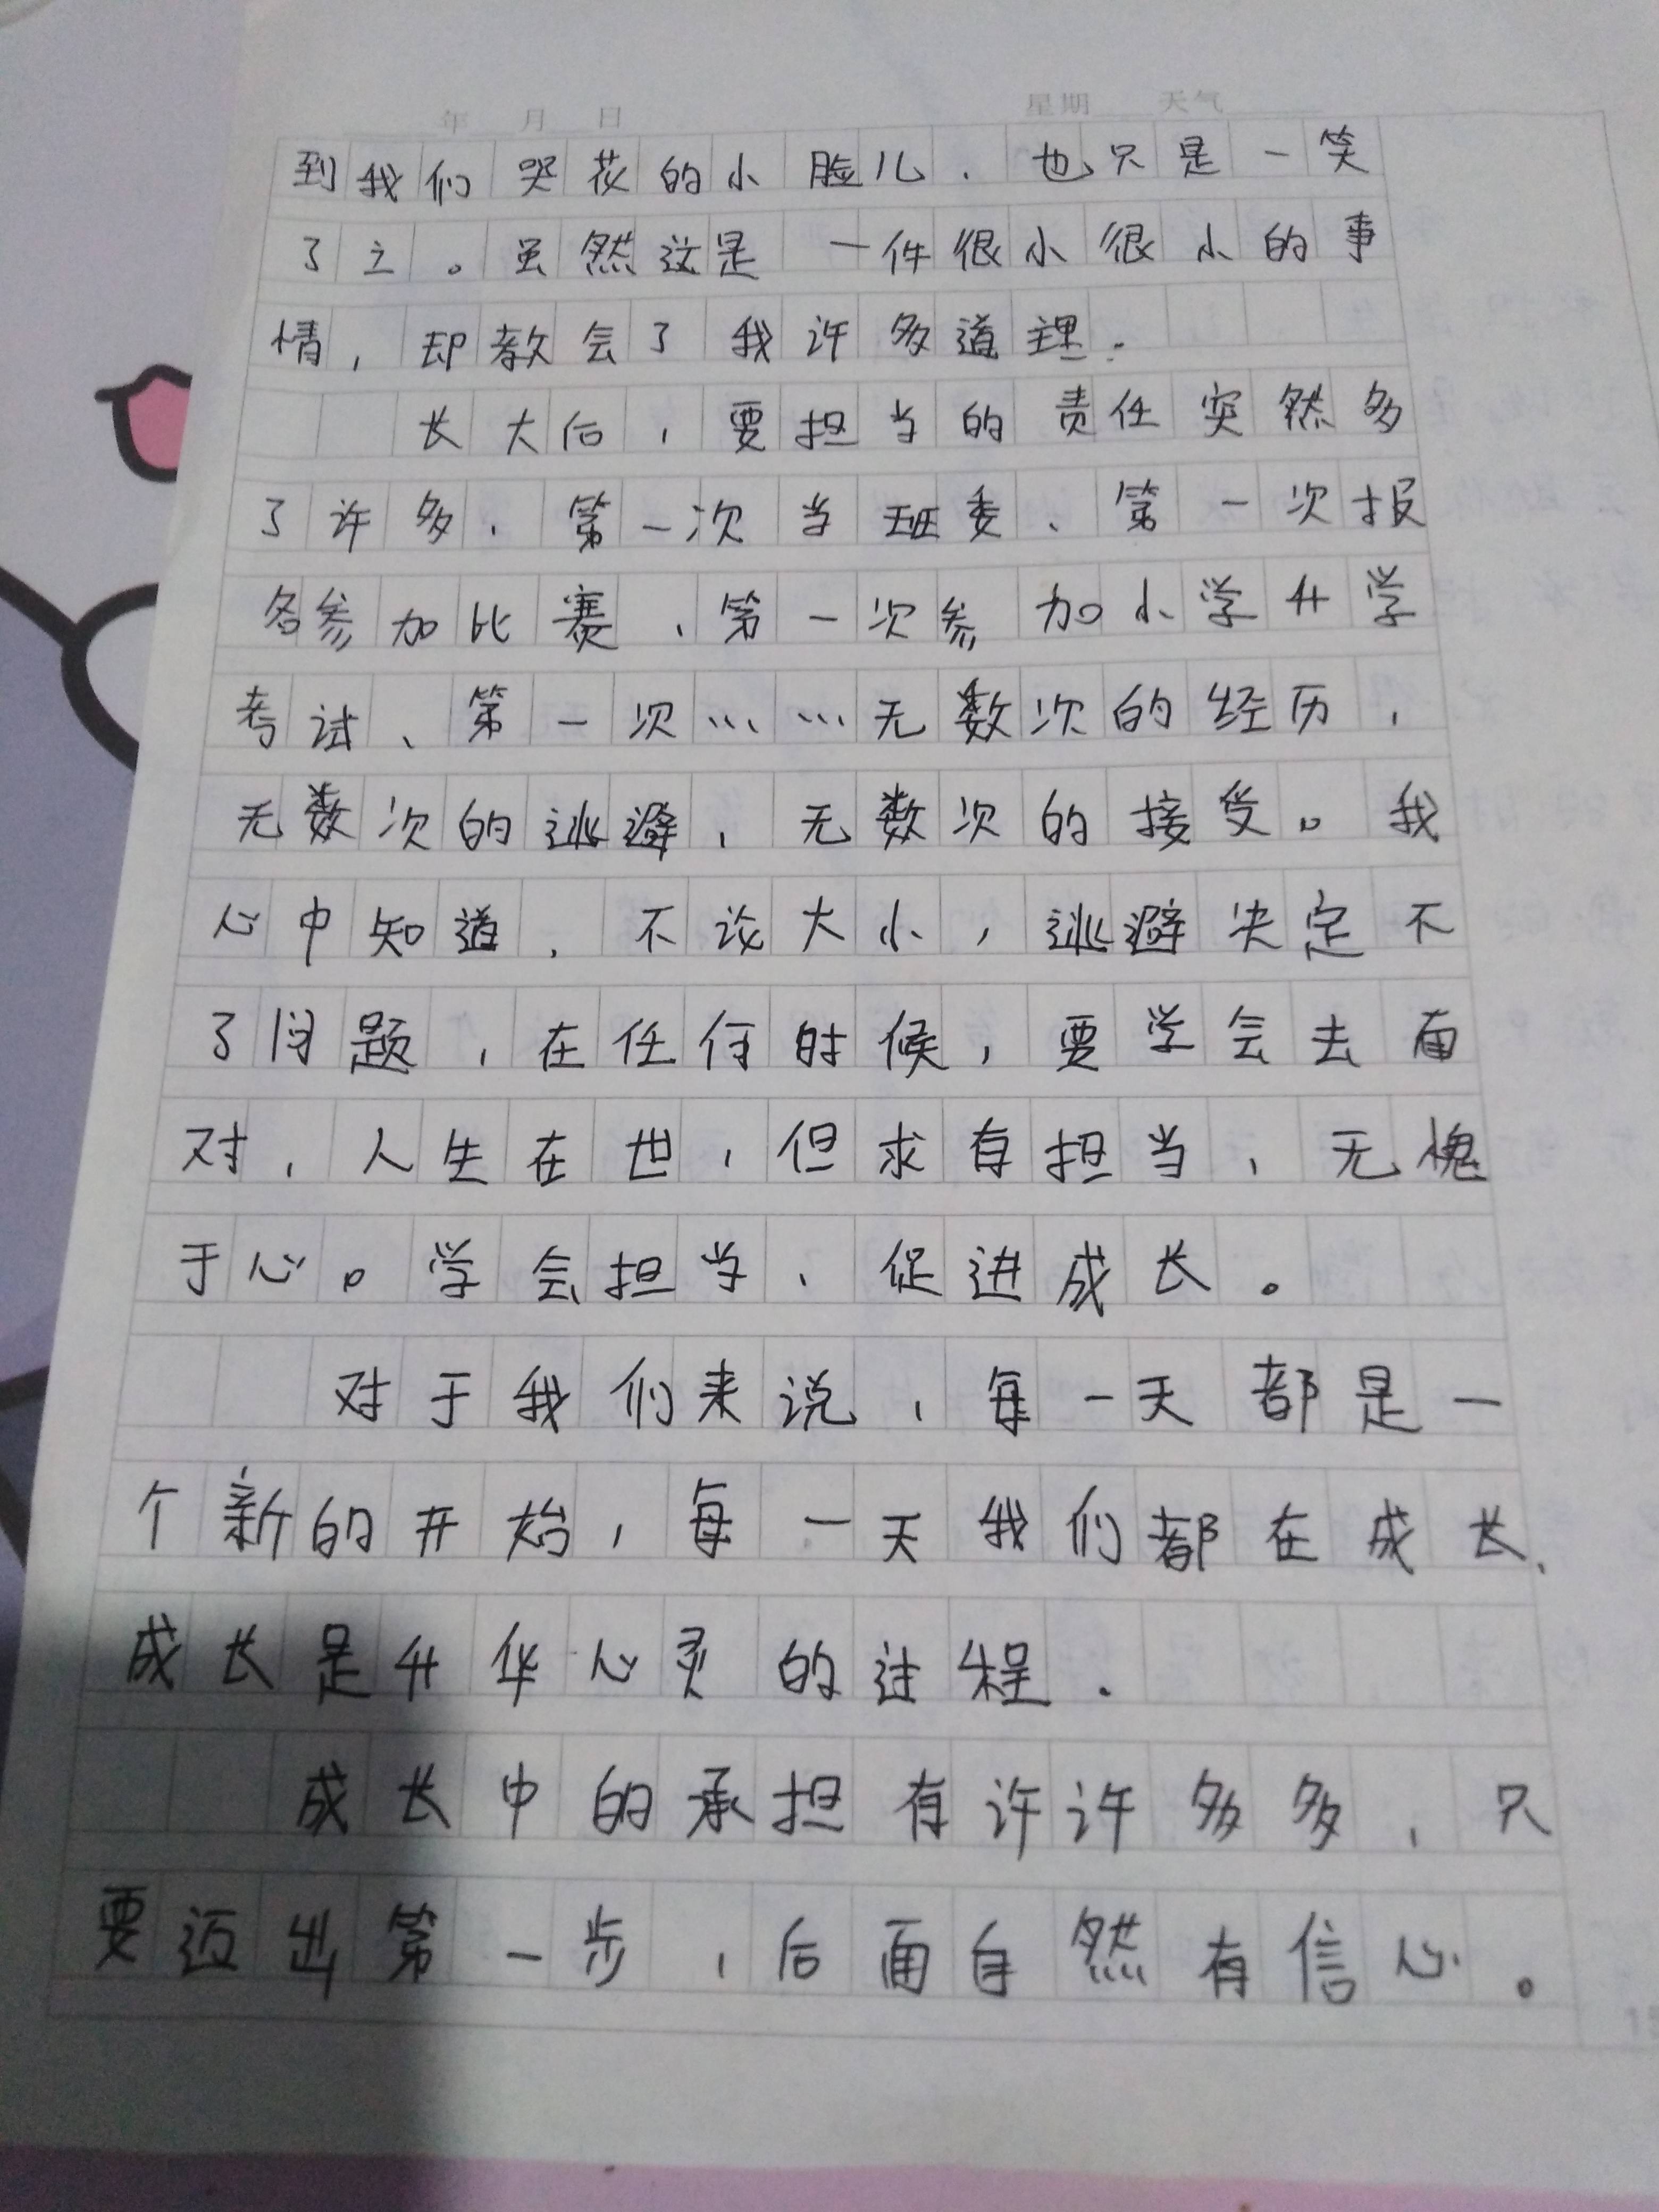 年 月 日 星期 天气
到我们哭花的小脸儿，也只是一笑
了之。虽然这是一件很小很小的事
情，却教会了我许多道理.
长大后，要担当的责任突然多
了许多，第一次当班委、第一次报
名参加比赛、第一次参加小学升学
考试、第一次……无数次的经历，
无数次的逃避，无数次的接受。我
心中知道，不论大小，逃避决定不
了问题，在任何时候，要学会去面
对，人生在世，但求有担当，无愧
于心。学会担当，促进成长。
对于我们来说，每一天都是一
个新的开始，每一天我们都在成长、
成长是升华心灵的过程.
成长中的承担有许许多多，只
要迈出第一步，后面自然有信心。